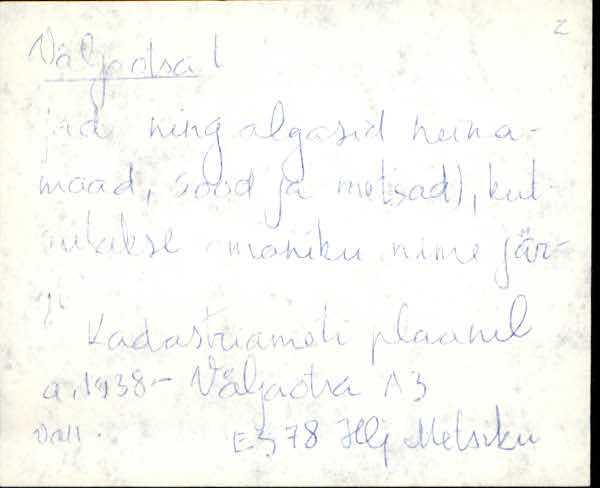 2
Väljaotsa |
jad ning algasid heina-
maad, sood ja metsad), kut-
sutakse omaniku nime jär-
gi.
Kadastriameti plaanil
a. 1938 - Väljaotsa A3
Vall. E, 78 Hlj Metsiku